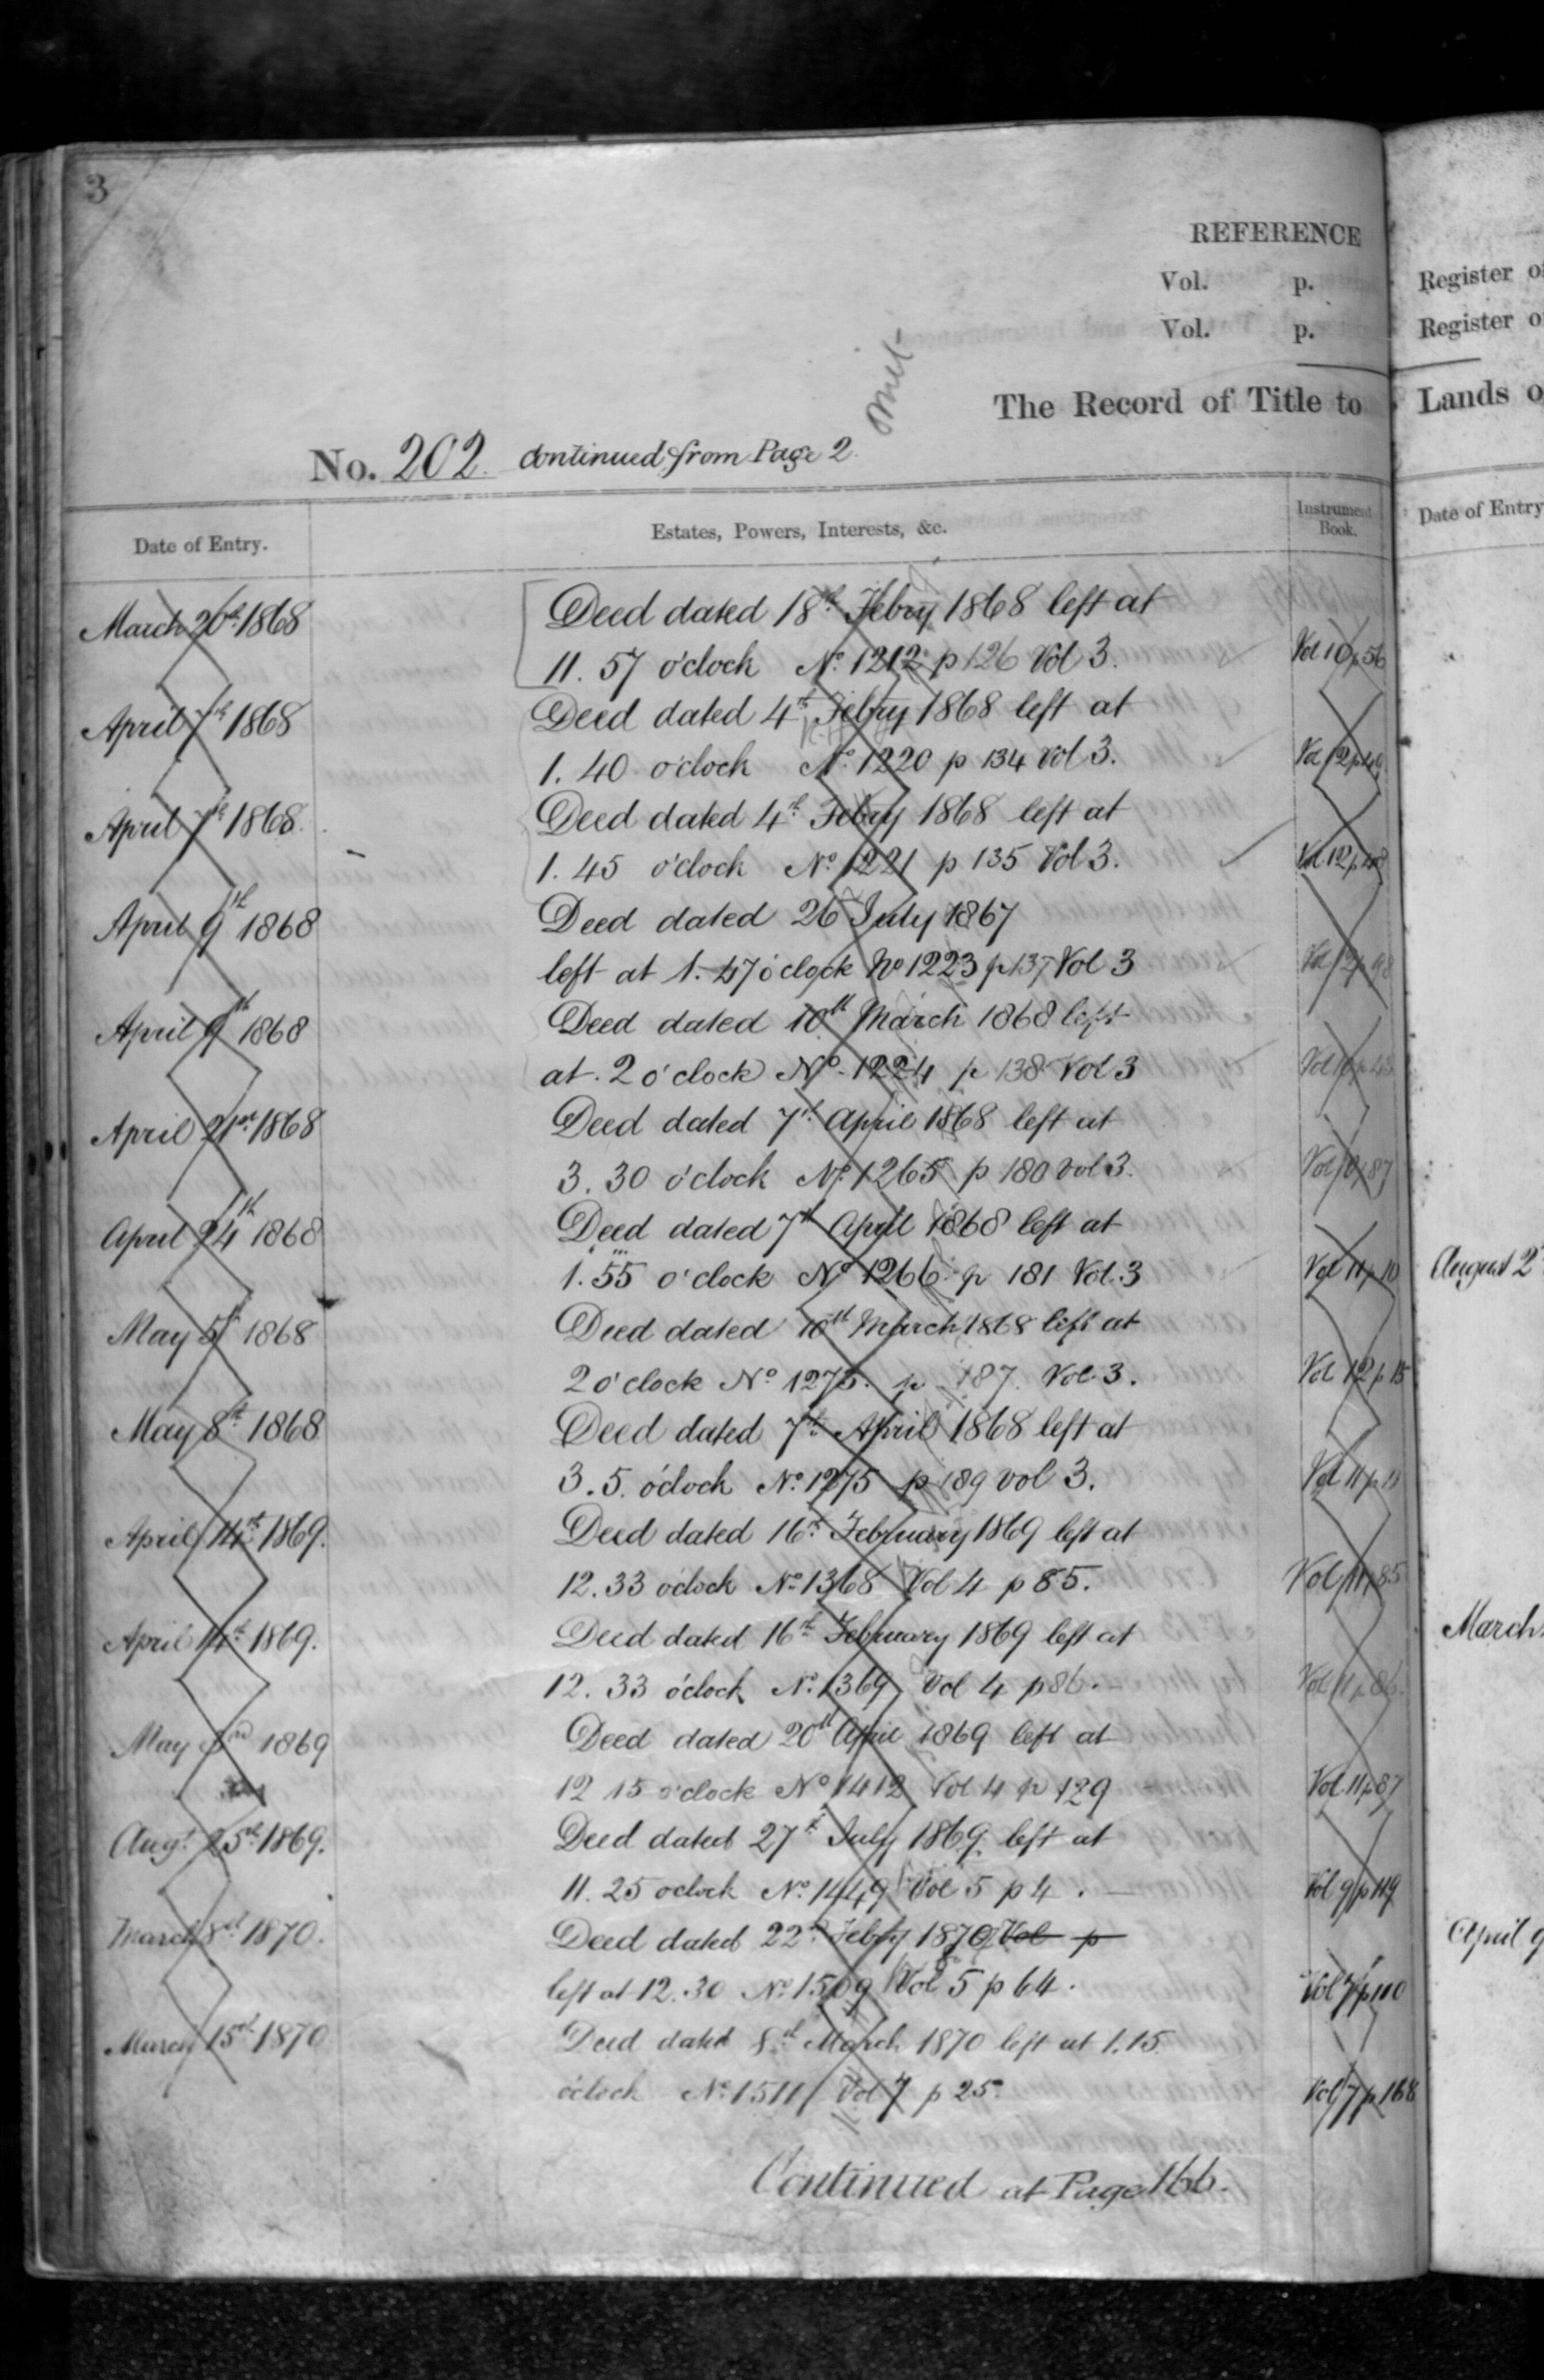 3
REFERENCE
Vol. p.
Vol. p.
omit
The Record of Title to
No. 202. continued from Page 2.
Date of Entry. Estates, Powers, Interests, &c. Instrument Book.
March 20th 1868 Deed dated 18th Febry 1868 left at
11. 57 o'clock No. 1212 p 126 Vol 3. Vol 10 p 56
April 7th 1868 Deed dated 4th Febry 1868 left at
1. 40 o'clock No. 1220 p 134 Vol 3. Vol 12 p 49
April 7th 1868. Deed dated 4th Febry 1868 left at
1. 45 o'clock No. 1221 p 135 Vol 3. Vol 12 p 48
April 9th 1868 Deed dated 26 July 1867
left at 1. 47 o'clock No 1223 p 137 Vol 3 Vol 12 p 98
April 9th 1868 Deed dated 10th March 1868 left
at. 2 o'clock No. 1224 p 138 Vol 3 Vol
April 21st 1868 Deed dated 7th April 1868 left at
3. 30 o'clock No. 1265 p 180 vol 3. Vol p 87
April 24th 1868 Deed dated 7th April 1868 left at
1. 55 o'clock No 1266 p 181 Vol. 3 Vol 11 p 10
May 5th 1868 Deed dated 10th March 1868 left at
2 o'clock No 1273. p 187. Vol 3. Vol 12 p 15
May 8th 1868 Deed dated 7th April 1868 left at
3. 5. o'clock No. 1275 p 189 vol 3. Vol 11 p 11
April 14th 1869. Deed dated 16th February 1869 left at
12. 33 o'clock No. 1368 Vol 4 p 85. Vol 11 p 85
April 14th 1869. Deed dated 16th February 1869 left at
12. 33 o'clock No. 1369 Vol 4 p 86. Vol 11 p 86.
May 3rd 1869 Deed dated 20th April 1869 left at
12 15 o'clock No 1412 Vol 4 p 129 Vol. 11 p 87
Augt. 25th 1869. Deed dated 27th July 1869 left at
11. 25 oclock No. 1449 Vol 5 p 4. Vol 9 p 119
March 8th 1870. Deed dated 22d Febry 1870 Vol p
left at 12. 30 No. 1509 Vol 5 p 64. Vol 7 p 110
March 15th 1870 Deed dated 8th March 1870 left at 1. 15.
o'clock No. 1511 Vol 7 p 25. Vol 7 p 168
Continued at Page 166.
Register of
Register of
Lands o
Date of Entry
August 2
March
April 9